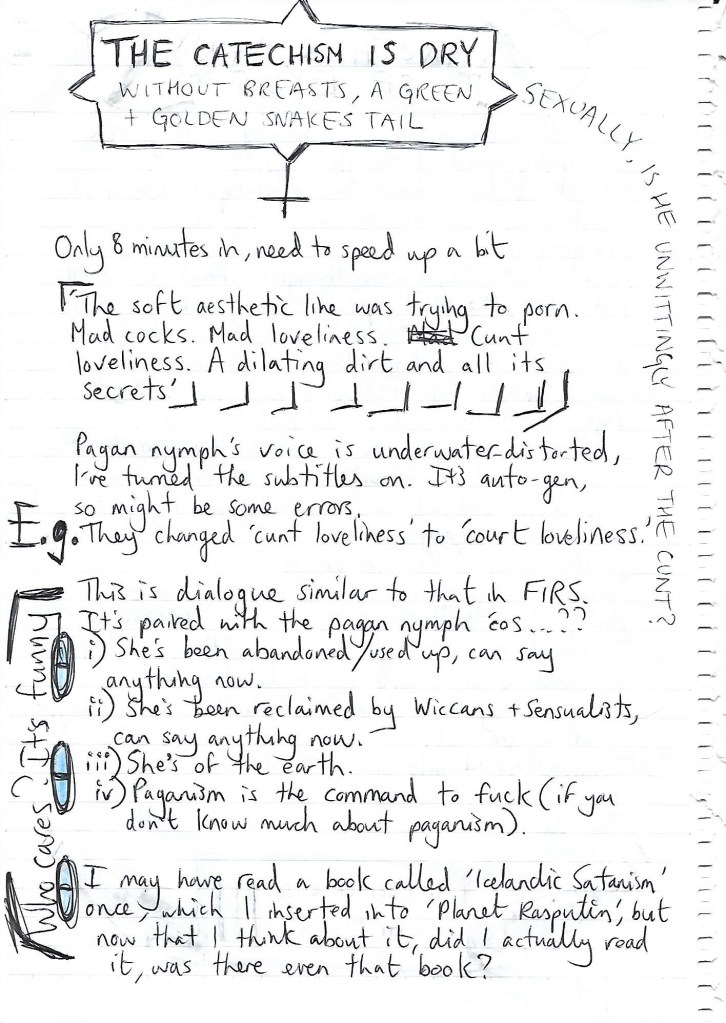 THE CATECHISM IS DRY
WITHOUT BREASTS, A GREEN
+ GOLDEN SNAKES TAIL
SEXUALLY, IS HE UNWITTINGLY AFTER THE CUNT?
Only 8 minutes in, need to speed up a bit
'The soft aesthetic line was trying to porn.
Mad cocks. Mad loveliness. Cunt
loveliness. A dilating dirt and all its
secrets'
Pagan nymph's voice is underwater-distorted,
I've turned the subtitles on. It's auto-gen,
so might be some errors.
E.g. They changed 'cunt loveliness' to 'court loveliness.'
This is dialogue similar to that in FIRS.
It's paired with the pagan nymph 'cos....??
i) She's been abandoned/used up, can say
anything now.
ii) She's been reclaimed by Wiccans + Sensualists,
can say anything now.
iii) She's of the earth.
iv) Paganism is the command to fuck (if you
don't know much about paganism).
Who cares? It's funny
I may have read a book called 'Icelandic Satanism'
once, which I inserted into 'Planet Rasputin', but
now that I think about it, did I actually read
it, was there even that book?